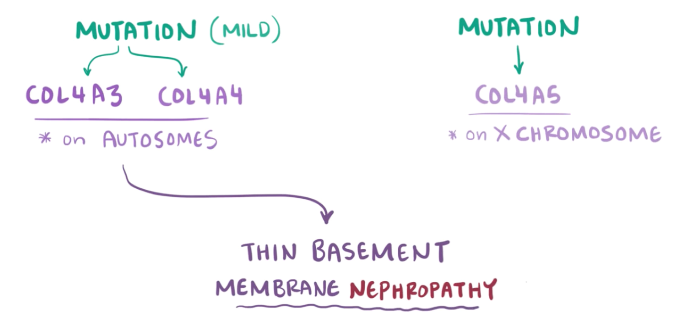 MUTATION (MILD)
COL4A3 COL4A4
* on AUTOSOMES
MUTATION
COL4A5
* on X CHROMOSOME
THIN BASEMENT
MEMBRANE NEPHROPATHY